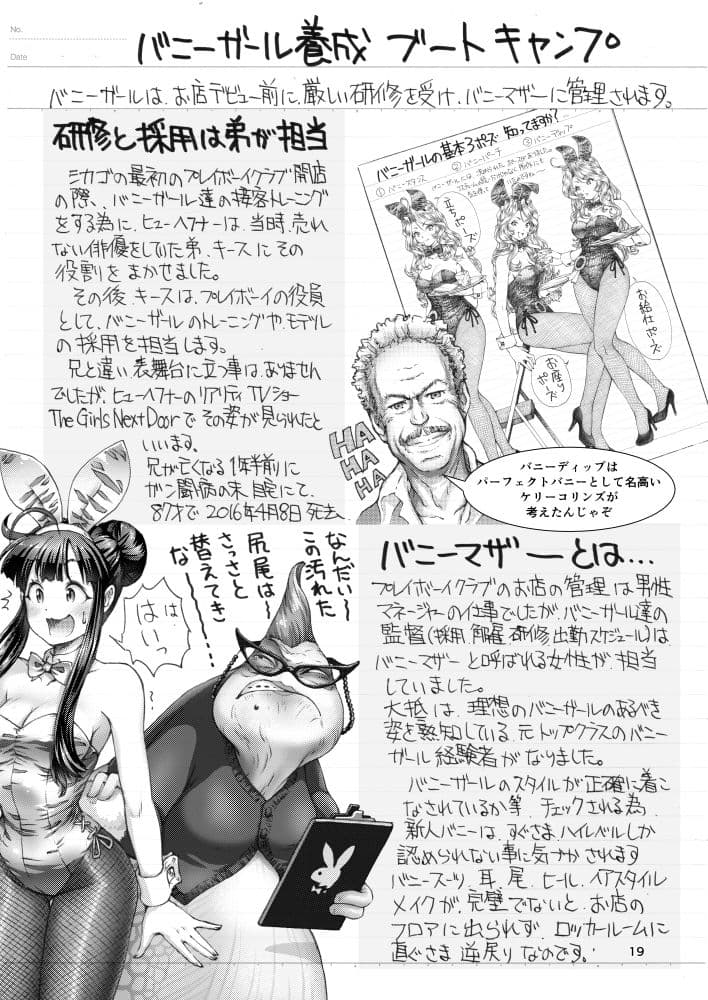 No.
Date
バニーガール養成 ブートキャンプ
バニーガールは、お店デビュー前に、厳しい研修を受け、バニーマザーに管理されます。
研修と採用は弟が担当
シカゴの最初のプレイボーイクラブ開店
の際、バニーガール達の接客トレーニング
をする為に、ヒューヘフナーは、当時、売れ
ない俳優をしていた弟、キースにその
役割をまかせました。
その後、キースは、プレイボーイの役員
として、バニーガールのトレーニングや、モデル
の採用を担当します。
兄と違い表舞台に立つ事は、ありません
でしたが、ヒューヘフナーのリアリティTVショー
The Girls Next Doorでその姿が見られたと
いいます。
兄が亡くなる1年半前に
ガン闘病の末、自宅にて、
87才で2016年4月8日死去、
バニーガールの基本3ポーズ 知ってますか?
①バニースタンス
②バニーパーチ
立ちポーズ
お座りポーズ
お給仕ポーズ
HA
HA
HA
バニーディップは
パーフェクトバニーとして名高い
ケリーコリンズが
考えたんじゃぞ
バニーマザーとは…
プレイボーイクラブのお店の管理は男性
マネージャーの仕事でしたが、バニーガール達の
監督(採用、解雇、研修、出勤スケジュール)は
バニーマザーと呼ばれる女性が、担当
していました。
大抵は、理想のバニーガールのあるべき
姿を熟知している、元トップクラスのバニー
ガール経験者がなりました。
バニーガールのスタイルが正確に着こ
なされているか等、チェックされる為、
新人バニーは、すぐさま、ハイレベルしか
認められない事に気づかされます
バニースーツ、耳、尾、ヒール、ヘアスタイル
メイクが、完璧でないと、お店の
フロアに出られず、ロッカールームに
直ぐさま逆戻りなのです。
なんだい〜
この汚れた
尻尾は〜
さっさと
替えてき
な〜〜
は
はいっ
19